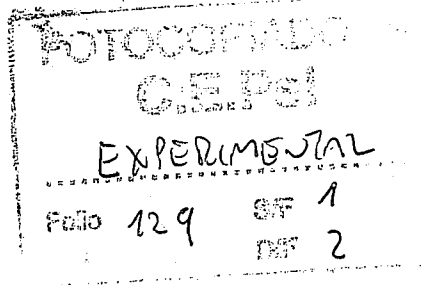 FOTOCOPIADO
C.E.Psi
EXPERIMENTAL
Folio 129 S/F 1
D/F 2